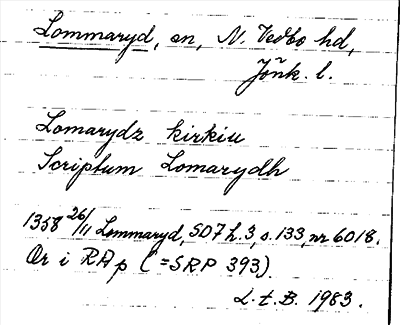 Lommaryd, sn, N. Vedbo hd,
Jönk. l.
Lomarydz kirkiu
Scriptum Lomarydh
1358 26/11 Lommaryd, SD7 h. 3, s. 133, nr 6018.
Or i RAp (=SRP 393).
L.t.B. 1983.